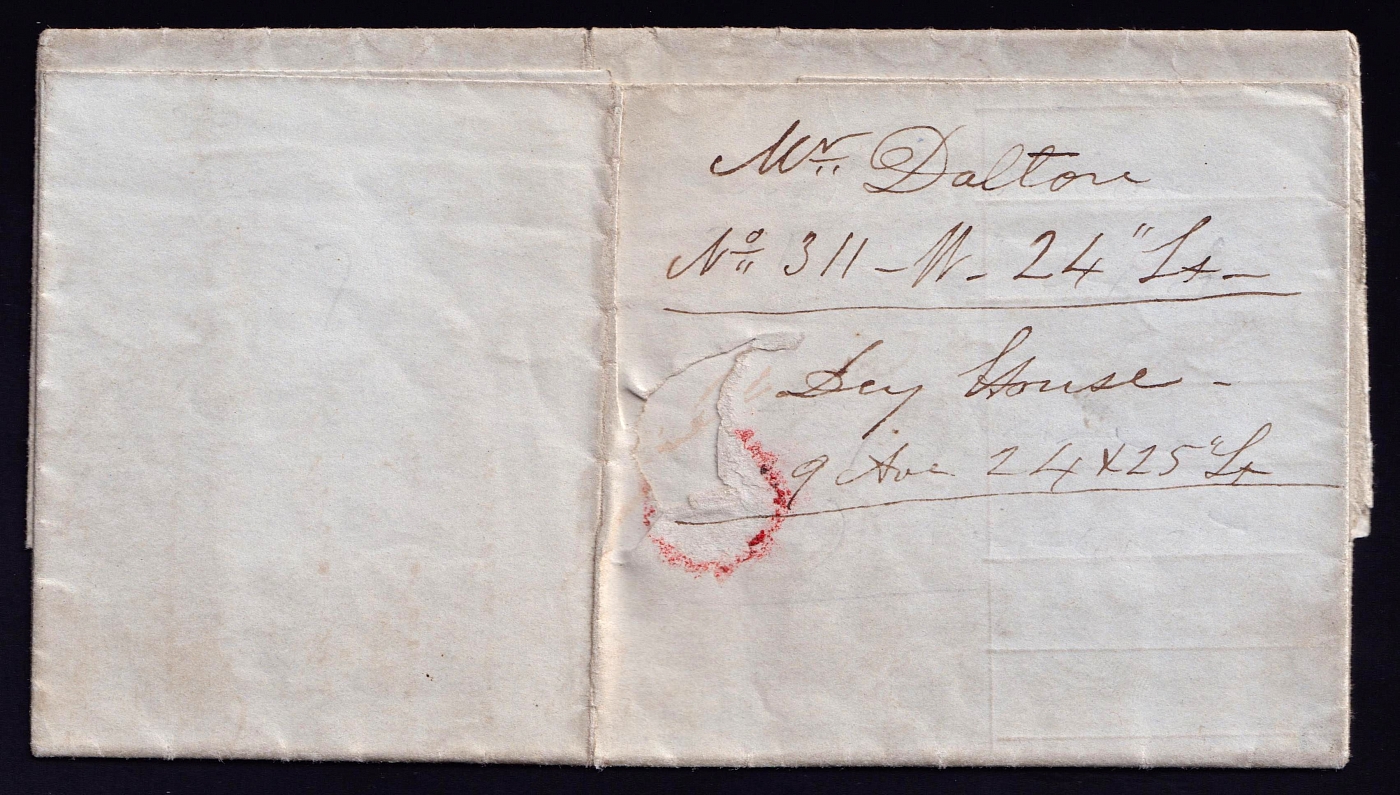 Mr. Dalton
No. 311 - W - 24" St -
Dey House -
9 Ave 24 x 25" St